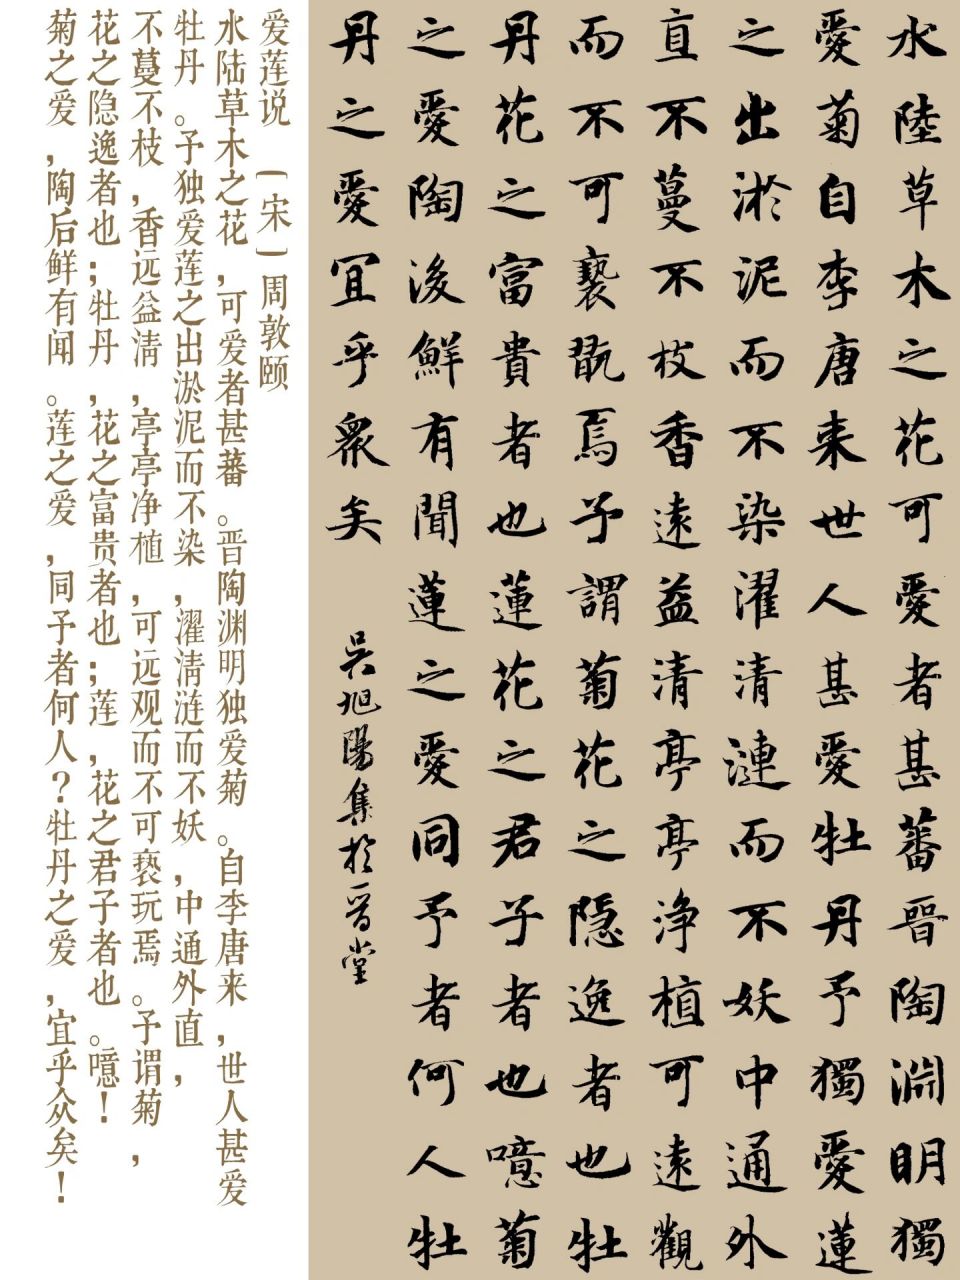 水陸草木之花可愛者甚蕃晉陶淵明獨
愛菊自李唐来世人甚愛牡丹予獨愛蓮
之出淤泥而不染濯清漣而不妖中通外
直不蔓不枝香遠益清亭亭浄植可遠觀
而不可褻翫焉予謂菊花之隐逸者也牡
丹花之富貴者也蓮花之君子者也噫菊
之愛陶後鮮有聞蓮之愛同予者何人牡
丹之愛宜乎衆矣
吴旭陽集於晉堂
爱莲说 〔宋〕周敦颐
水陆草木之花，可爱者甚蕃。晋陶渊明独爱菊。自李唐来，世人甚爱
牡丹。予独爱莲之出淤泥而不染，濯清涟而不妖，中通外直，
不蔓不枝，香远益清，亭亭净植，可远观而不可亵玩焉。予谓菊，
花之隐逸者也；牡丹，花之富贵者也；莲，花之君子者也。噫！
菊之爱，陶后鲜有闻。莲之爱，同予者何人？牡丹之爱，宜乎众矣！